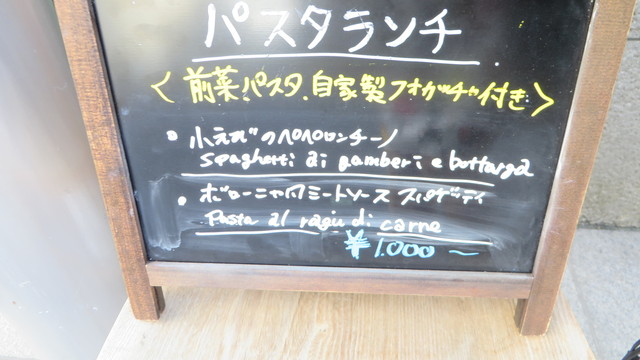 パスタランチ
<前菜、パスタ、自家製フォカッチャ付き>
・小えびのペペロンチーノ
spaghetti ai gamberi e bottarga
・ボローニャ風ミートソース スパゲッティ
Pasta al ragù di carne
¥1.000～